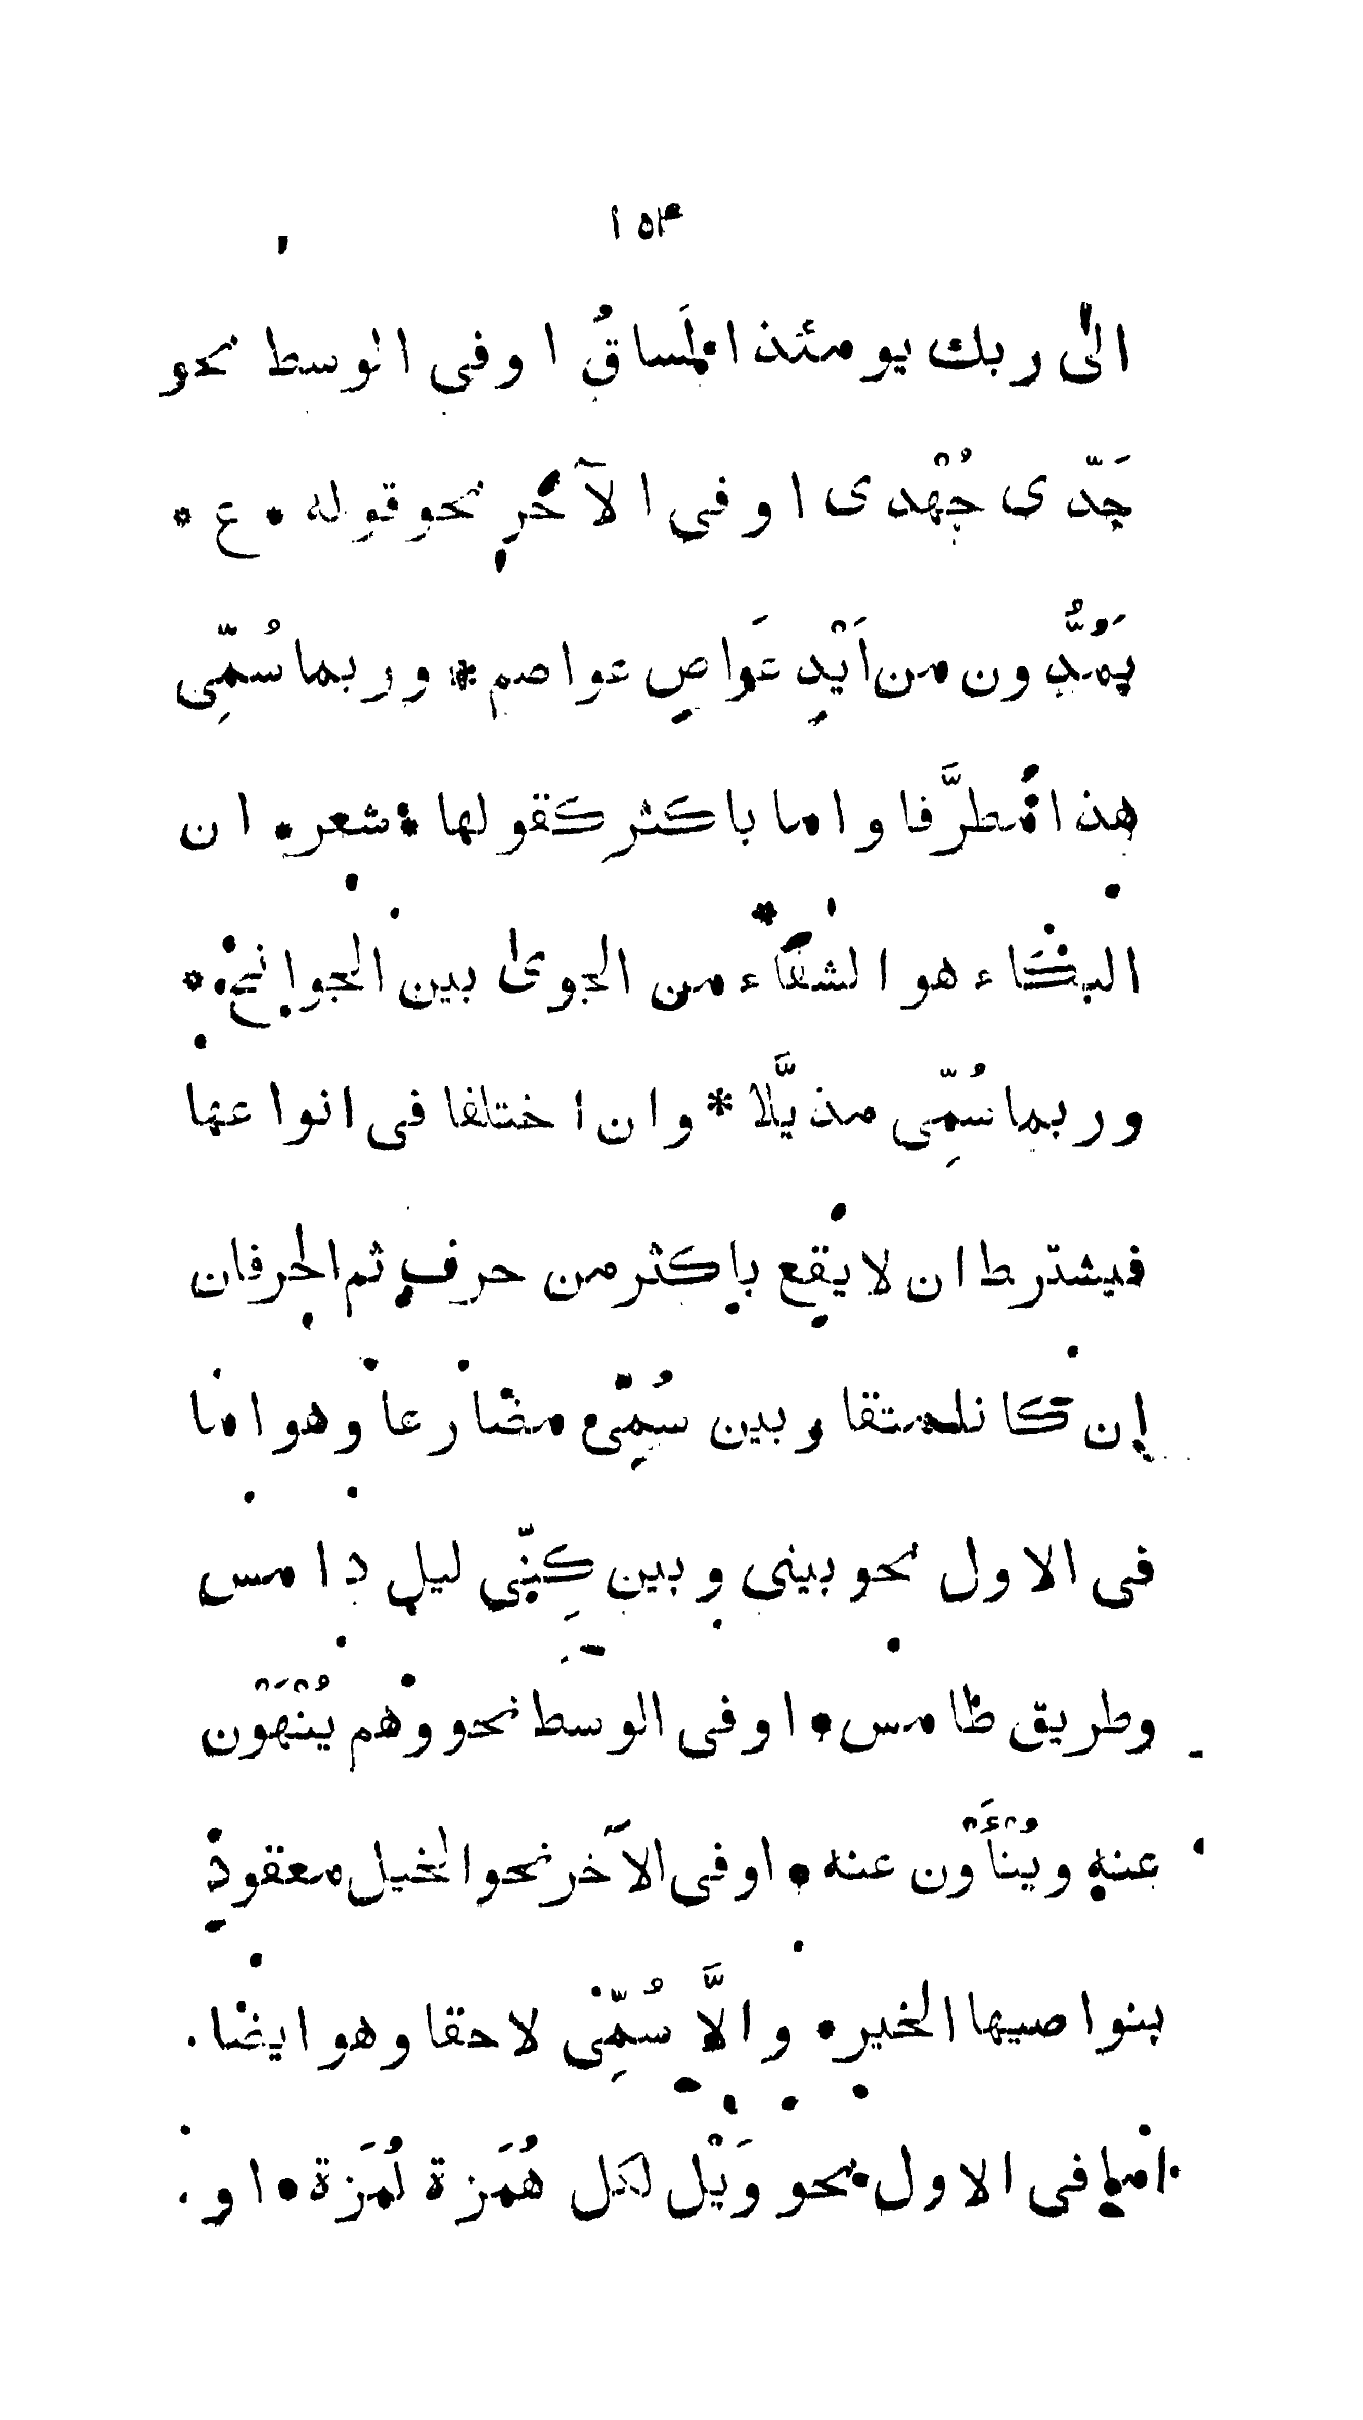 ١٥٤
الى ربك يومئذ المَساقُ اوفي الوسط نحو
جَدّى جُهْدى اوفي الآخر نحو قوله * ع *
يَمُدُّون من اَيْدٍ عَواصٍ عواصم * وربما سُمِّى
هذا مُطرَّفا واما باكثر كقولها * شعر * ان
البكاء هو الشفاء من الجوى بين الجوانح *
وربما سُمِّى مذيَّلا * وان اختلفا في انواعها
فيشترط ان لا يقع باكثر من حرف ثم الحرفان
إن كانا متقاربين سُمِّى مضارعا وهو اما
في الاول نحو بيني وبين كِنّي ليل دامس
وطريق طامس * اوفي الوسط نحو وهم يُنْهَوْن
عنه ويُنْأَوْن عنه * اوفي الآخر نحو الخيل معقود
بنواصيها الخير * والَّا سُمِّى لاحقا وهو ايضا
اما في الاول نحو وَيْل لكل هُمَزة لُمَزة * او